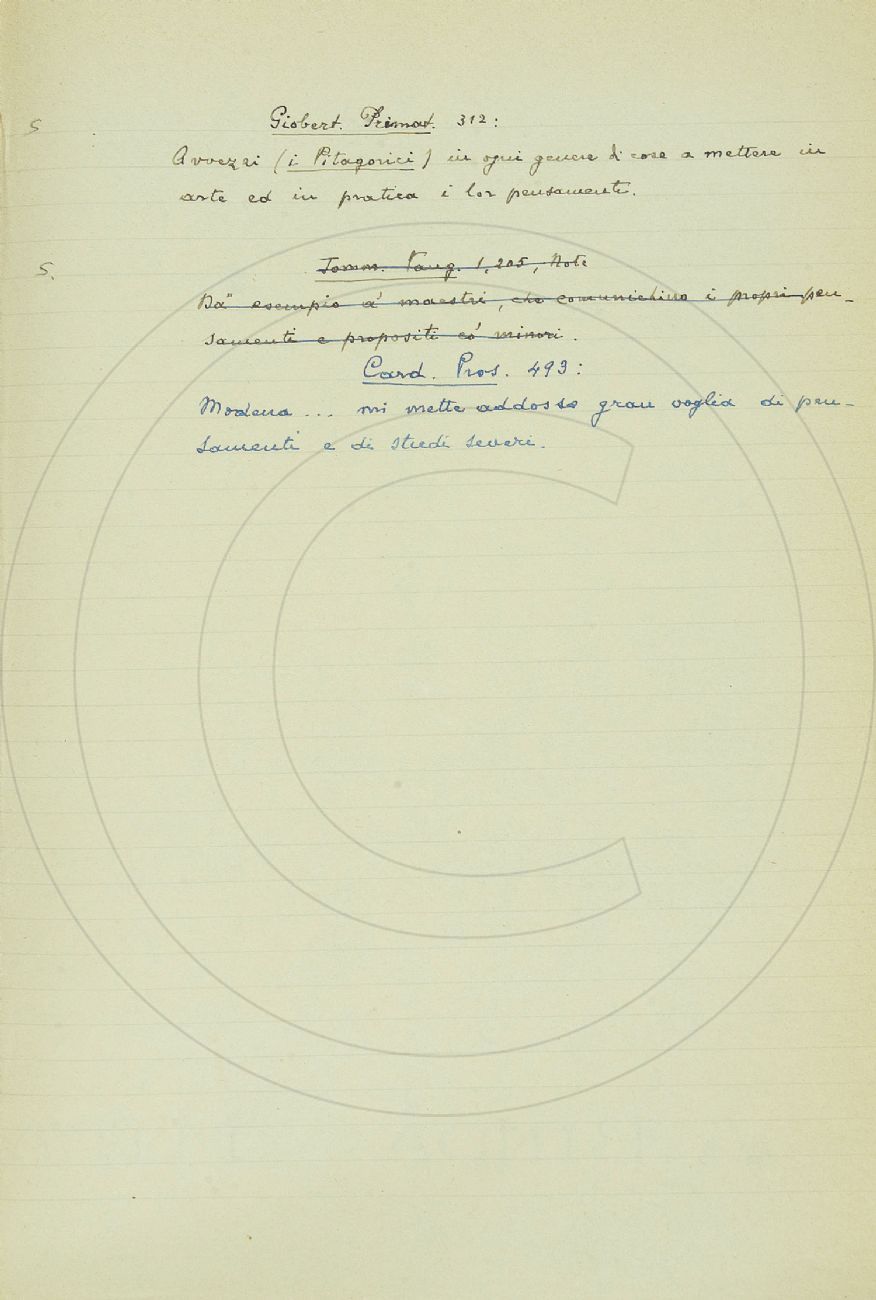 S
Giobert. Primat. 312:
Avvezzi (i Pitagorici) in ogni genere di cose a mettere in
arte ed in pratica i lor pensamenti.
S.
Tomm. Vang. 1, 205, Note
Dà esempio a' maestri, che comunichino i propri pen-
samenti e propositi co' minori.
Card. Pros. 493:
Modena ... mi mette addosso gran voglia di pen-
samenti e di studi severi.